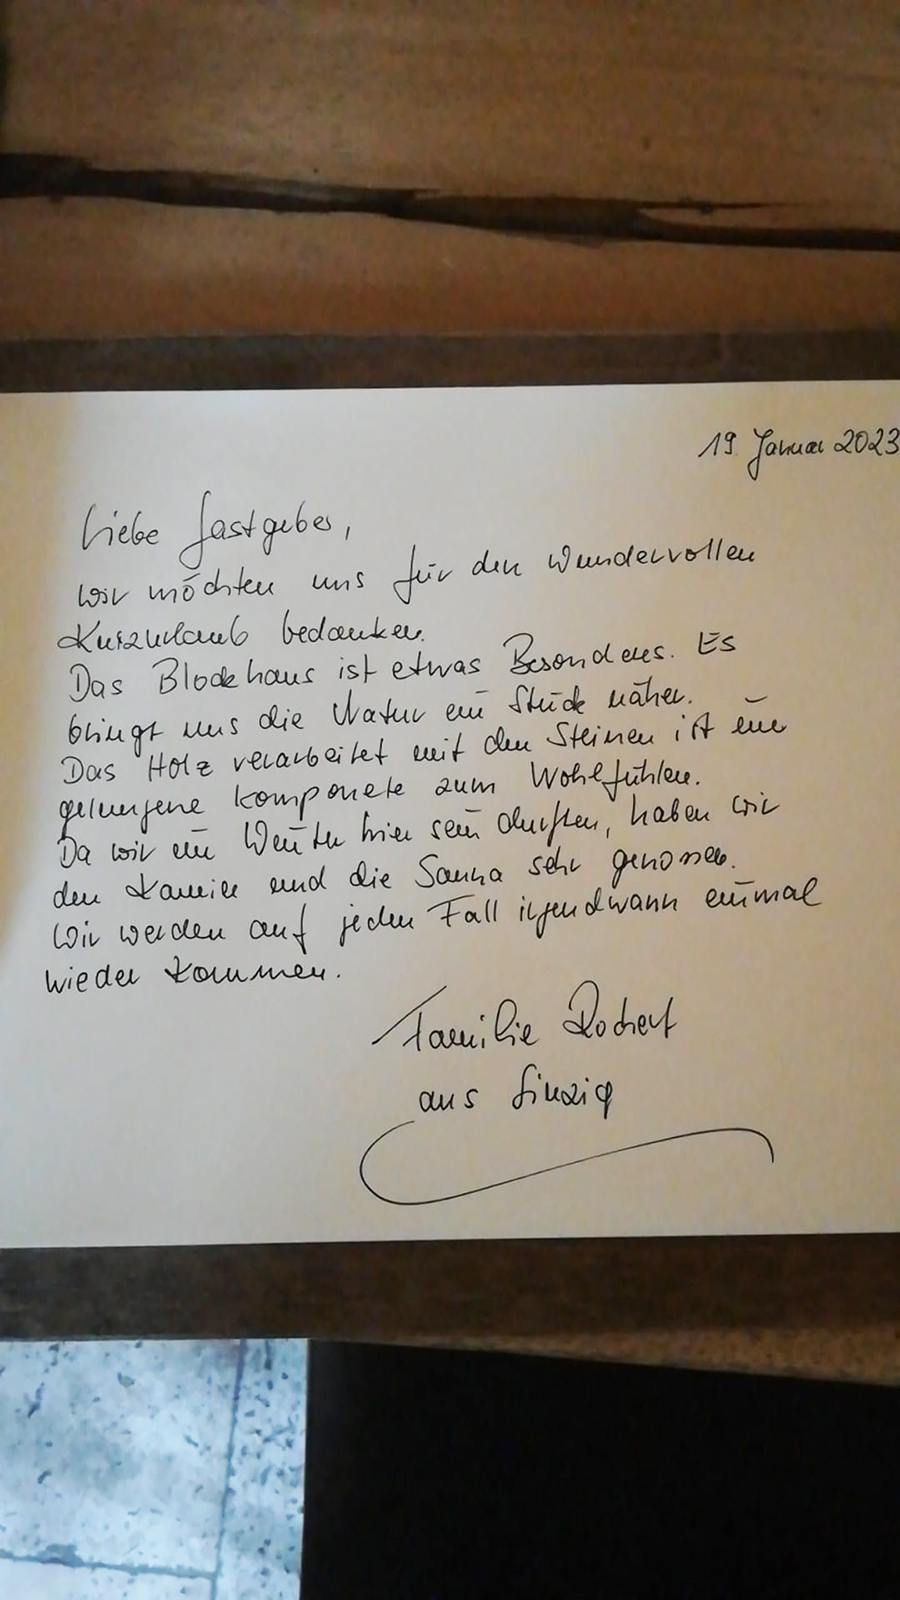 19. Januar 2023
Liebe Gastgeber,
wir möchten uns für den wundervollen
Kurzurlaub bedanken.
Das Blockhaus ist etwas Besonderes. Es
bringt uns die Natur ein Stück näher.
Das Holz verarbeitet mit den Steinen ist eine
gelungene Komponete zum Wohlfühlen.
Da wir im Winter hier sein durften, haben wir
den Kamin und die Sauna sehr genossen.
Wir werden auf jeden Fall irgendwann einmal
wieder kommen.
Familie Rochert
aus Sinzig